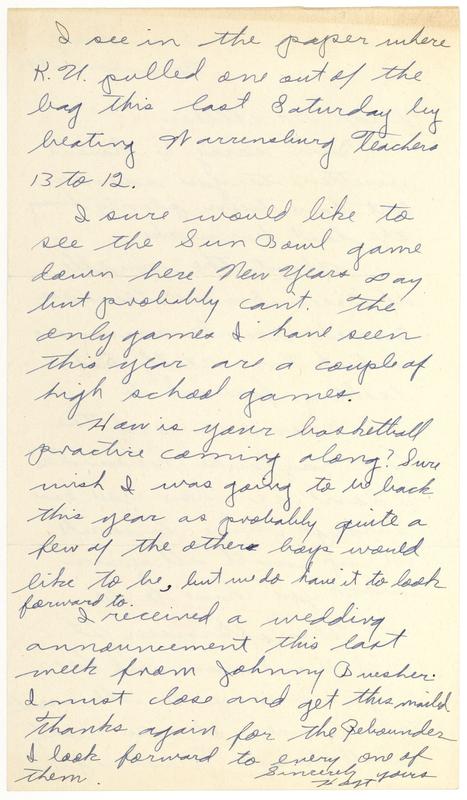 I see in the paper where
K.U. pulled one out of the
bag this last Saturday by
beating Warrensburg Teachers
13 to 12.
I sure would like to
see the Sun Bowl game
down here New Years Day
but probably cant. The
only games I have seen
this year are a couple of
high school games.
How is your basketball
practice coming along? Sure
wish I was going to be back
this year as probably quite a
few of the other boys would
like to be, but we do have it to look
forward to.
I received a wedding
announcement this last
week from Johnny Buesher.
I must close and get this mailed
thanks again for the Rebounder
I look forward to every one of
them.
Sincerely yours